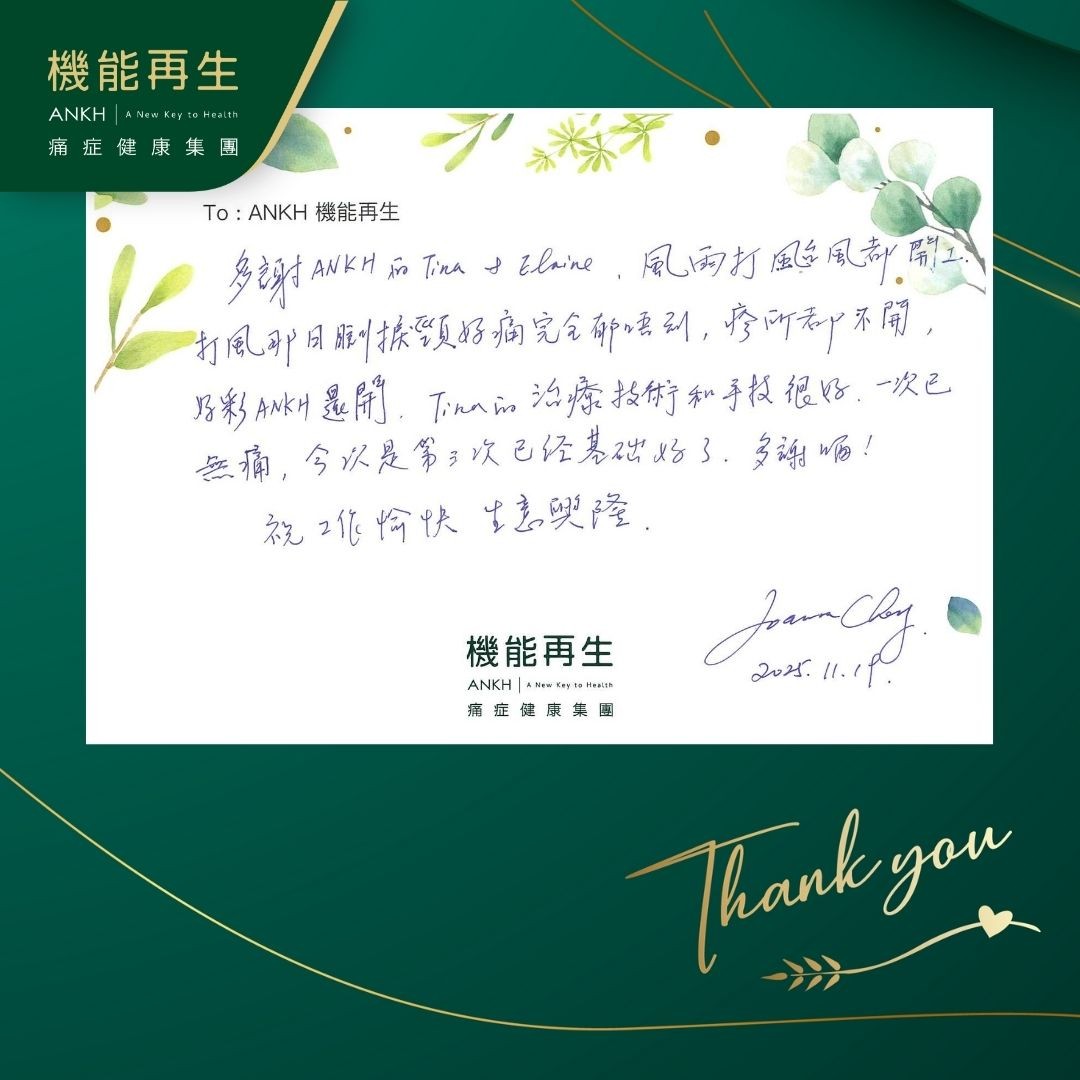 機能再生
ANKH | A New Key to Health
痛症健康集團
To : ANKH 機能再生
多謝 ANKH 的 Tina & Elaine，風雨打風台風都開工.
打風那日瞓捩頸好痛完全郁唔到，疹所都不開，
好彩 ANKH 還開. Tina 的治療技術和手技很好. 一次已
無痛，今次是第三次已经基础好了. 多謝晒！
祝工作愉快 生意興隆.
Joanna
2025.11.19.
機能再生
ANKH | A New Key to Health
痛症健康集團
Thank you